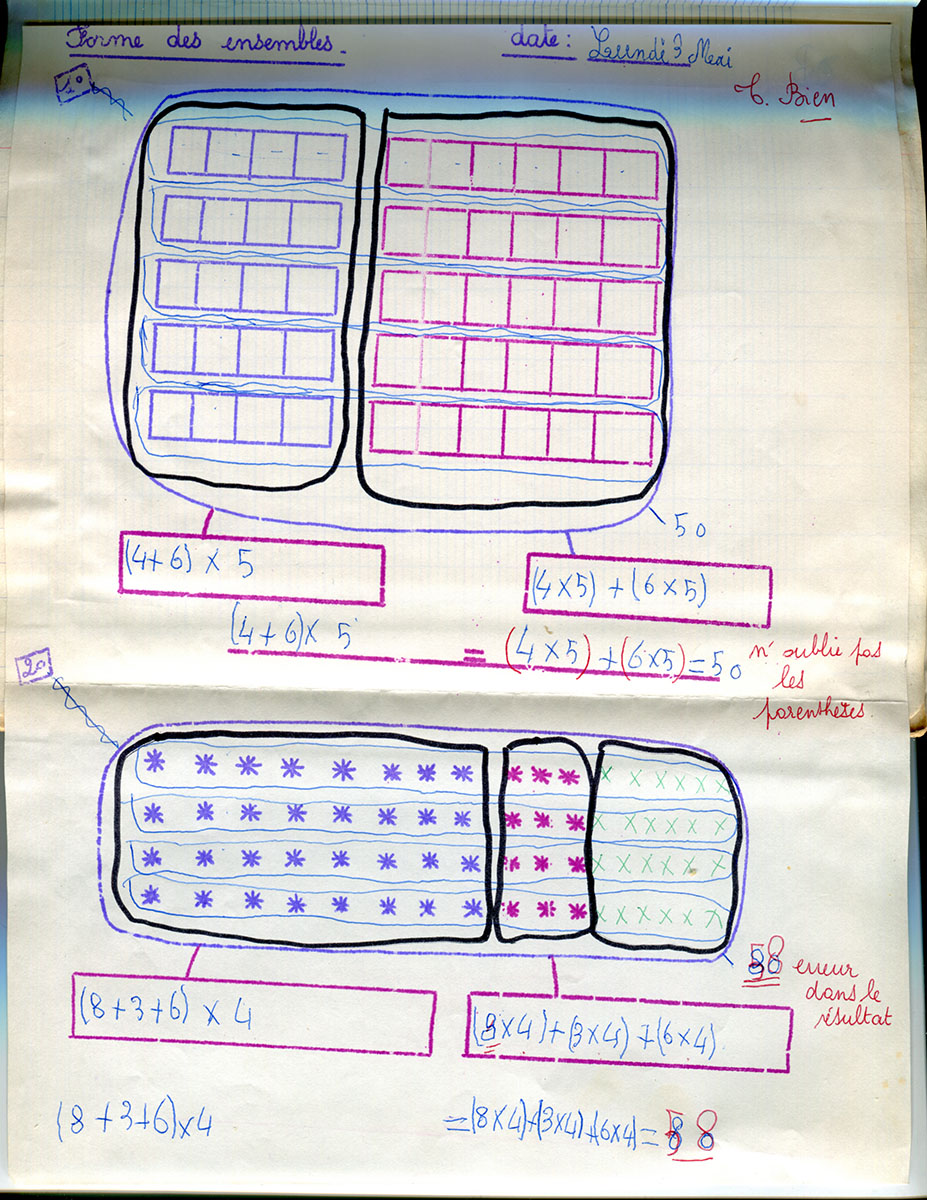 Forme des ensembles. date : Lundi 3 Mai
1°
T. Bien
50
(4+6) × 5
(4×5) + (6×5)
(4+6)× 5 = (4×5)+(6×5)=50
n'oublie pas
les
parenthèses.
2°
58 erreur
dans le
résultat
(8+3+6) × 4
(8×4)+(3×4)+(6×4)
(8+3+6)×4 =(8×4)+(3×4)+(6×4)= 58